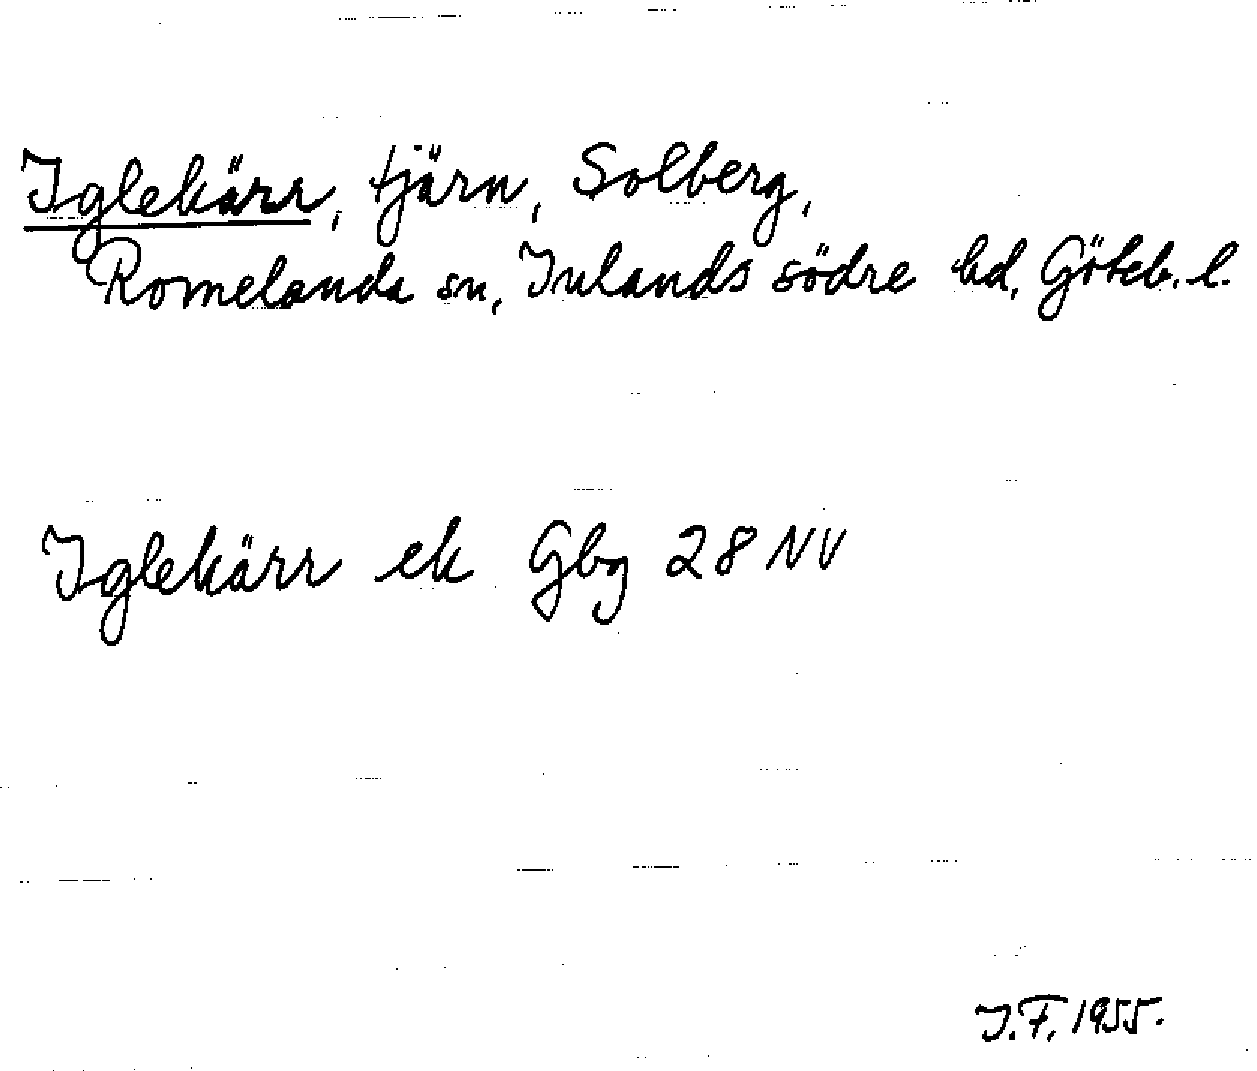 Iglekärr, tjärn, Solberg,
Romelanda sn, Inlands södre hd, Göteb. l.
Iglekärr ek Gbg 28 NV
I.F. 1955.